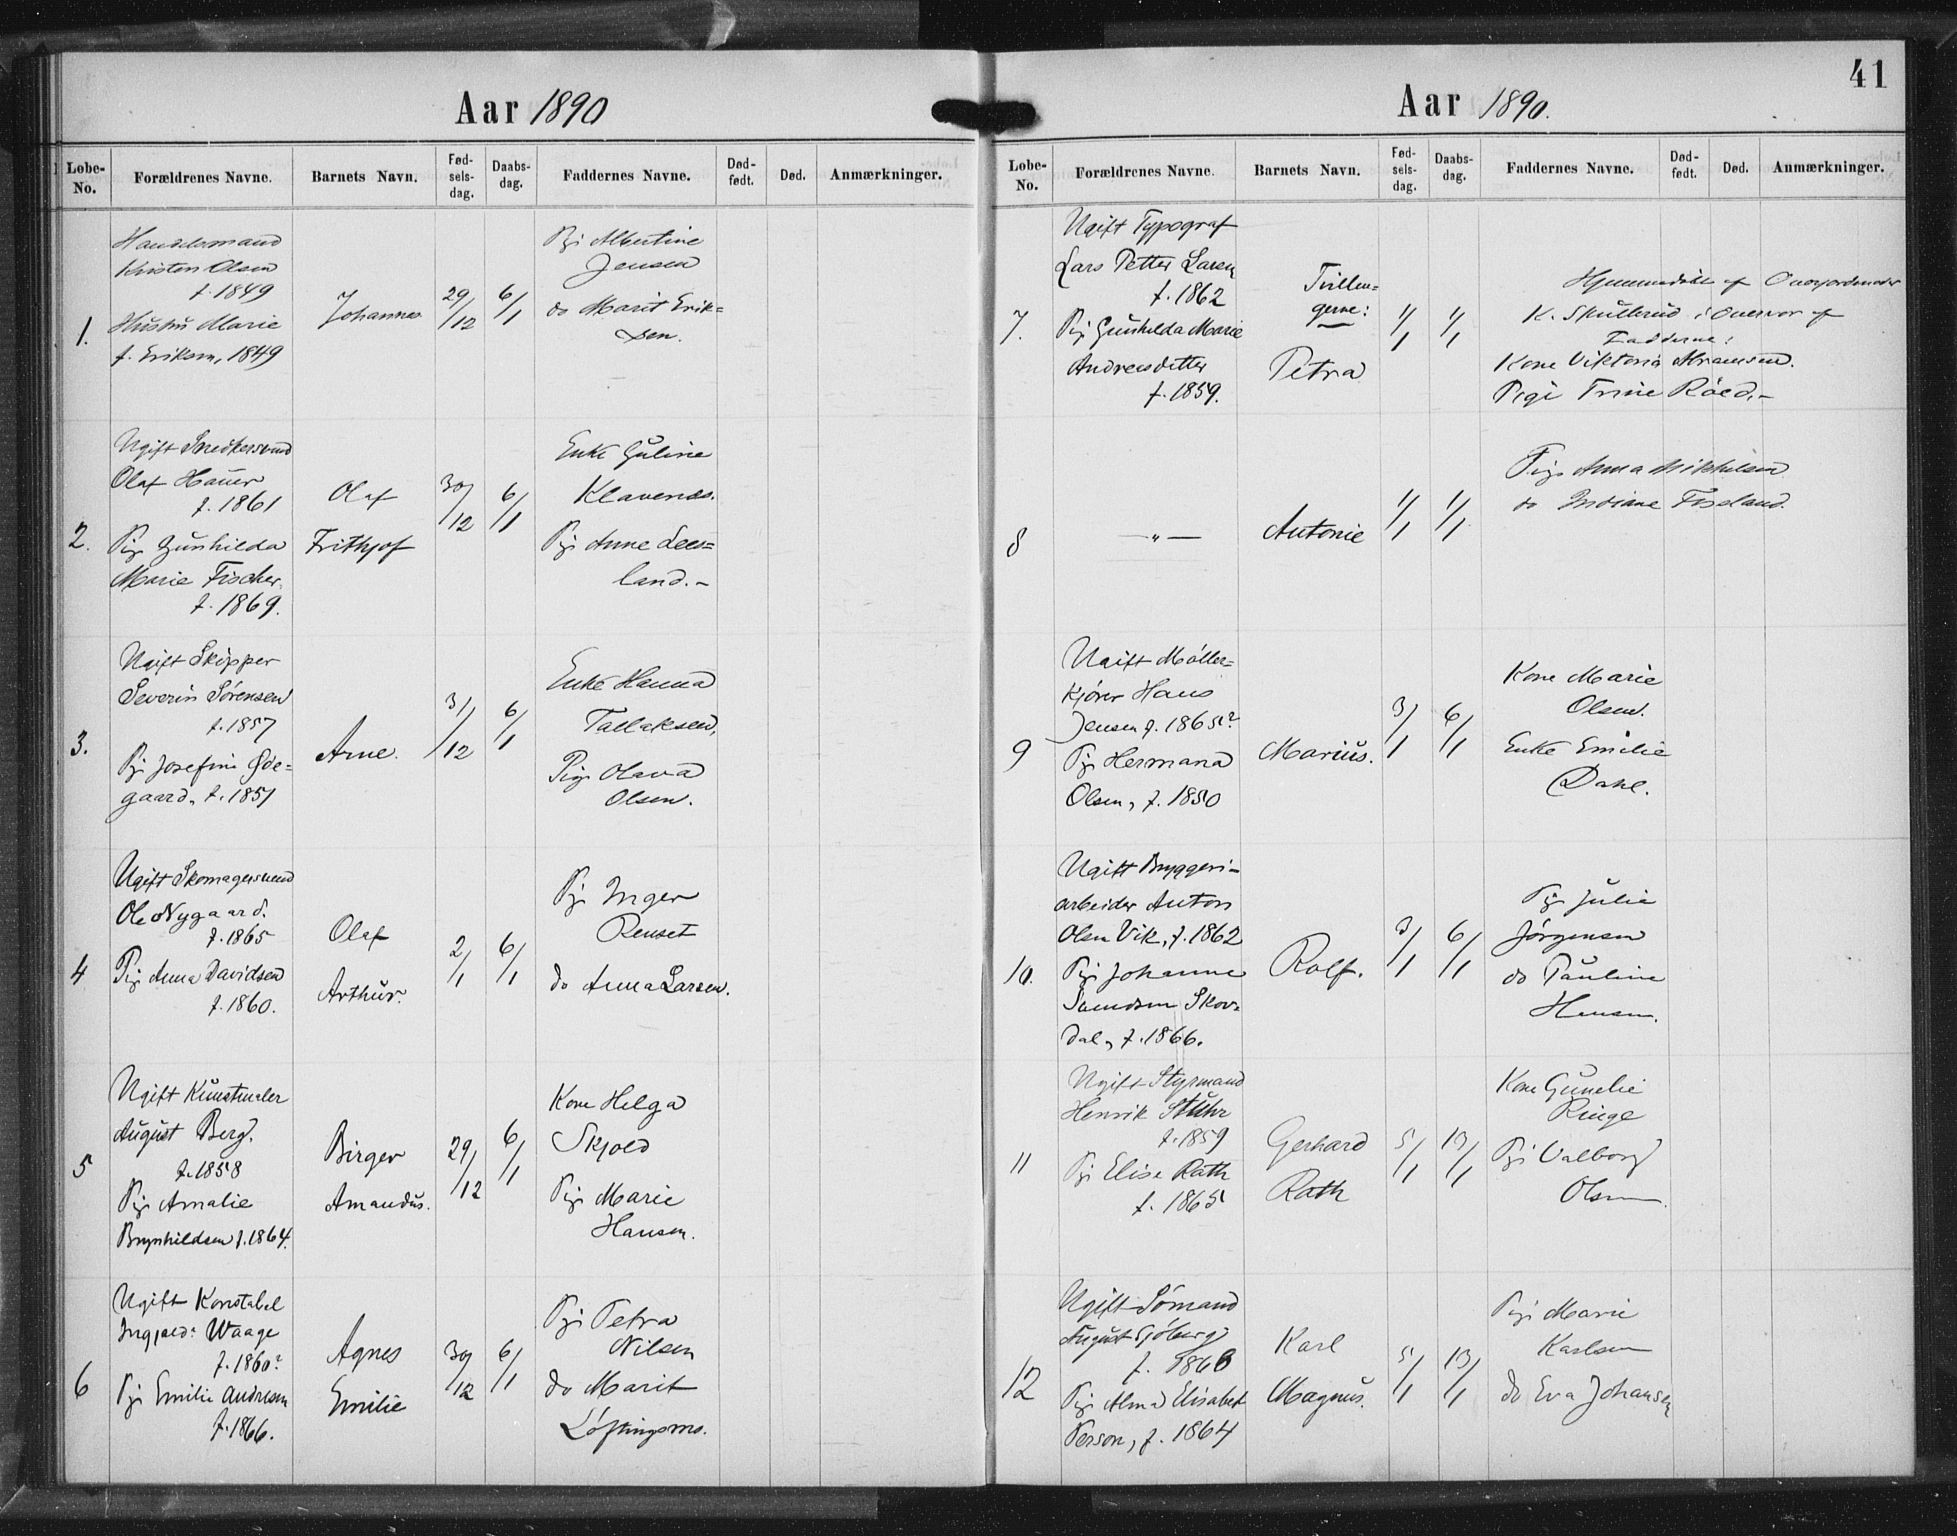 41
Aar 1890
Løbe-No.
Forældrenes Navne.
Barnets Navn.
Fød-sels-dag.
Daabs-dag.
Faddernes Navne.
Død-født.
Død.
Anmærkninger.
1.
Handelsmand
Kristen Olsen
f. 1849
Hustru Marie
f. Eriksen, 1849
Johannes
29/12
6/1
Pige Albertine
Jensen
do Marit Erik=
sen.
2.
Ugift Snedkersvend
Olaf Hauer
f. 1861
Pige Gunhilda
Marie Fischer
f. 1869.
Olaf
Frithjof
30/12
6/1
Enke Guline
Klavenes.
Pige Anne Lees=
land.-
3.
Ugift Skipper
Severin Sørensen
f. 1857
Pige Josefine Øde=
gaard, f. 1857
Arne.
31/12
6/1
Enke Hanna
Tallaksen,
Pige Olava
Olsen.
4
Ugift Skomagersvend
Ole Nygaard.
f. 1865
Pige Anna Davidsen
f. 1860.
Olaf
Arthur.
2/1
6/1
Pige Inger
Renset
do Anna Larsen.
5
Ugift Kunstmaler
August Berg.
f. 1858
Pige Amalie
Brynhildsen f. 1864.
Birger
Amandus.
29/12
6/1
Kone Helga
Skjold
Pige Marie
Hansen.
6
Ugift Konstabel
Waage
f. 1860?
Pige Emilie Andresen
f. 1866.
Agnes
Emilie
30/12
6/1
Pige Petra
Nilsen
do Marit
Løftingsmo.
Aar 1890.
Løbe-No.
Forældrenes Navne.
Barnets Navn.
Fød-sels-dag.
Daabs-dag.
Faddernes Navne.
Død-født.
Død.
Anmærkninger.
7.
Ugift Typograf
Lars Petter Larsen
f. 1862
Pige Gunhilda Marie
Andreasdatter
f. 1859.
Tvillin=
gerne:
Petra
1/1
1/1
Hjemmedøbt af Overjordemoder
K. Skullerud i Overvær af
Fadderne:
Kone Viktoria Abramsen.
Pige Trine Røed.-
8
— „ —
Antonie
1/1
1/1
Pige Anna Mikkelsen
do Indiane
9
Ugift Møller=
kjører Hans
Jensen f. 1865?
Pige Hermana
Olsen, f. 1850
Marius.
3/1
6/1
Kone Marie
Olsen.
Enke Emilie
Dahl.
10.
Ugift Bryggeri-
arbeider Anton
Olsen Vik, f. 1862
Pige Johanne
Skov=
dal, f. 1866.
Rolf.
3/1
6/1
Pige Julie
Jørgensen
do Pauline
Hansen.
11
Ugift Styrmand
Henrik Stuhr
f. 1859
Pige Elise Rath
f. 1865
Gerhard
Rath
5/1
13/1
Kone Gunelie
Ringe
Pige Valborg
Olsen
12
Ugift Sømand
August Sjøberg
f. 1866
Pige Alma Elisabet
Person, f. 1864
Karl
Magnus.
5/1
13/1
Pige Marie
Karlsen
do Eva Johansen